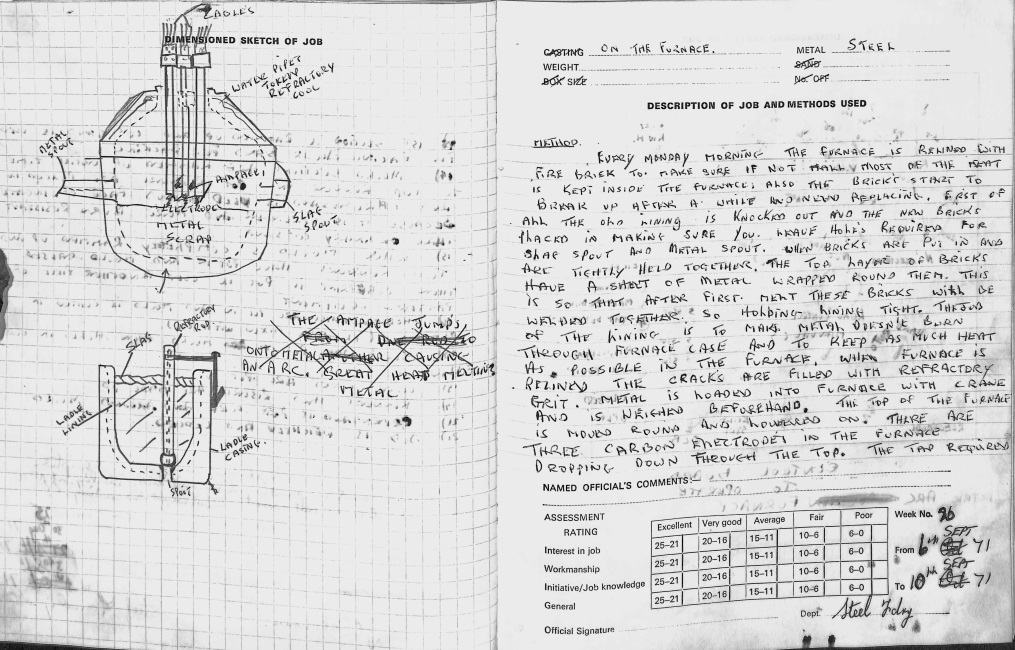 CABLES
DIMENSIONED SKETCH OF JOB
WATER PIPES
TO KEEP
REFRACTORY
COOL
METAL
SPOUT
AMPAGE
ELECTRODE
METAL
SCRAP
SLAG
SPOUT
REFRACTORY
ROD
SLAG
LADLE
LINING
LADLE
CASING
SPOUT
THE AMPAGE JUMPS
FROM ONE ROD TO
ONTO METAL ANOTHER CAUSING
AN ARC. GREAT HEAT MELTING
METAL
CASTING ON THE FURNACE. METAL STEEL
WEIGHT SAND
BOX SIZE No. OFF
DESCRIPTION OF JOB AND METHODS USED
METHOD.
EVERY MONDAY MORNING THE FURNACE IS RELINED WITH
FIRE BRICK TO MAKE SURE IF NOT ALL MOST OF THE HEAT
IS KEPT INSIDE THE FURNACE; ALSO THE BRICKS START TO
BREAK UP AFTER A WHILE AND NEED REPLACING. FIRST OF
ALL THE OLD LINING IS KNOCKED OUT AND THE NEW BRICKS
PLACED IN MAKING SURE YOU LEAVE HOLES REQUIRED FOR
SLAG SPOUT AND METAL SPOUT. WHEN BRICKS ARE PUT IN AND
ARE TIGHTLY HELD TOGETHER, THE TOP LAYER OF BRICKS
HAVE A SHEET OF METAL WRAPPED ROUND THEM. THIS
IS SO THAT AFTER FIRST MELT THESE BRICKS WILL BE
WELDED TOGETHER. SO HOLDING LINING TIGHT. THE JOB
OF THE LINING IS TO MAKE METAL DOESN'T BURN
THROUGH FURNACE CASE AND TO KEEP AS MUCH HEAT
AS POSSIBLE IN THE FURNACE. WHEN FURNACE IS
RELINED THE CRACKS ARE FILLED WITH REFRACTORY
GRIT. METAL IS LOADED INTO FURNACE WITH CRANE
AND IS WEIGHED BEFOREHAND. THE TOP OF THE FURNACE
IS MOVED ROUND AND LOWERED ON. THERE ARE
THREE CARBON ELECTRODES IN THE FURNACE
DROPPING DOWN THROUGH THE TOP. THE TAP REQUIRED
NAMED OFFICIAL'S COMMENTS:
ASSESSMENT
RATING
Excellent Very good Average Fair Poor
Interest in job 25–21 20–16 15–11 10–6 6–0
Workmanship 25–21 20–16 15–11 10–6 6–0
Initiative/Job knowledge 25–21 20–16 15–11 10–6 6–0
General 25–21 20–16 15–11 10–6 6–0
Official Signature
Week No. 26
SEPT
From 6th Oct 71
SEPT
To 10th Oct 71
Dept. Steel Fdry